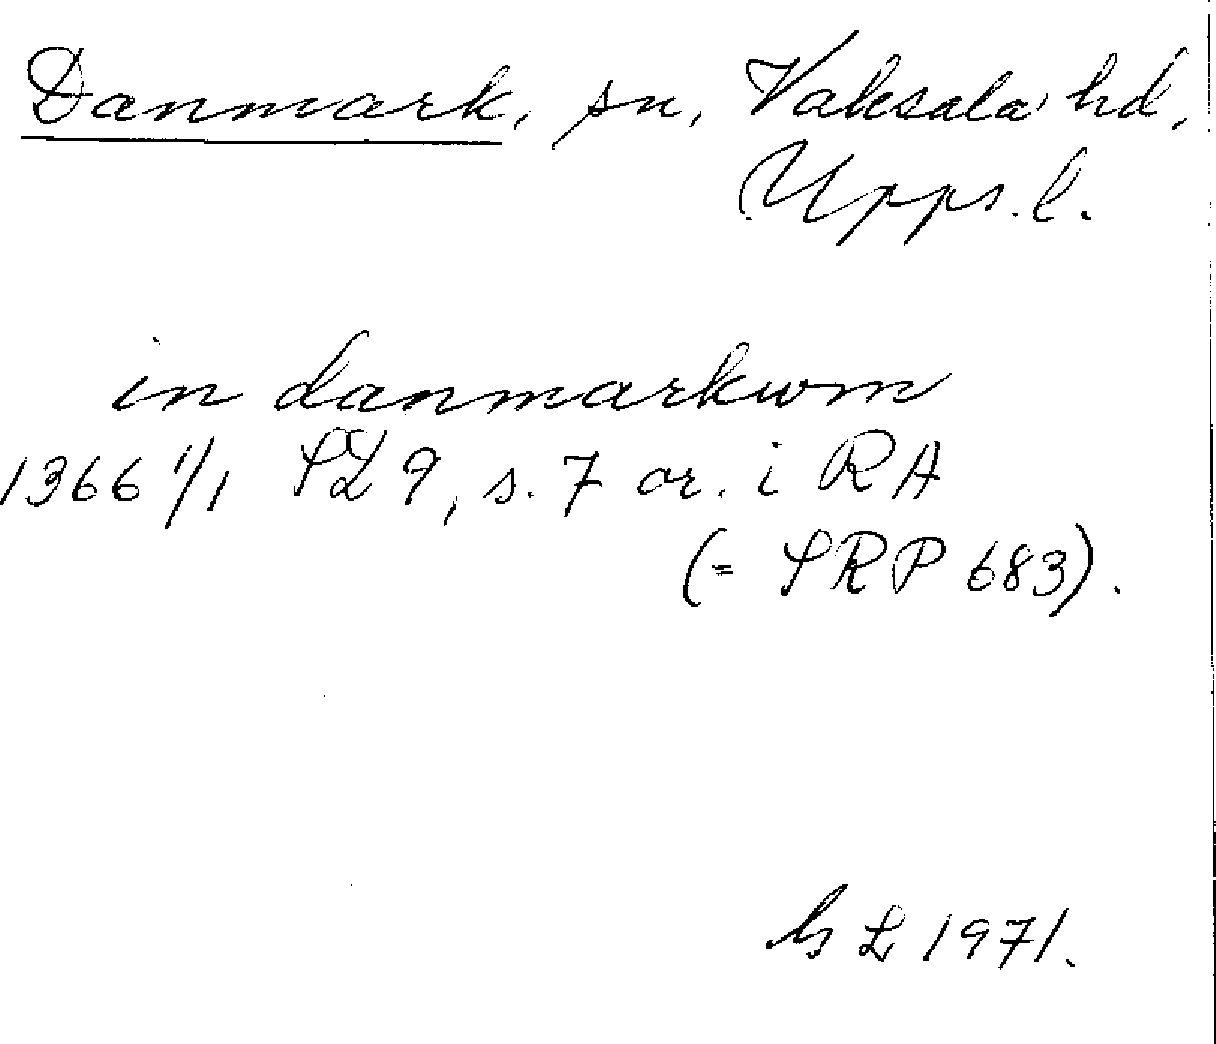 Danmark, sn, Vaksala hd,
Upps. l.
in danmarkwm
1366 1/1 SD 9, s. 7 or. i RA
(= SRP 683).
GL 1971.